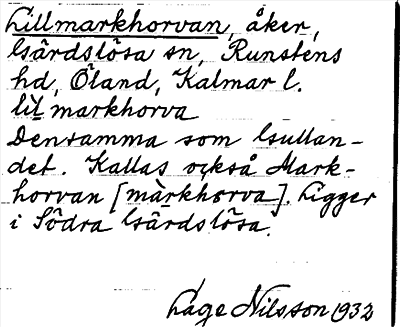 Lillmarkhorvan, åker,
Gärdslösa sn, Runstens
hd, Öland, Kalmar l.
lìlmarkhorva
Densamma som Gullan-
det. Kallas också Mark-
horvan [màrkhorva]. Ligger
i Södra Gärdslösa.
Lage Nilsson 1932